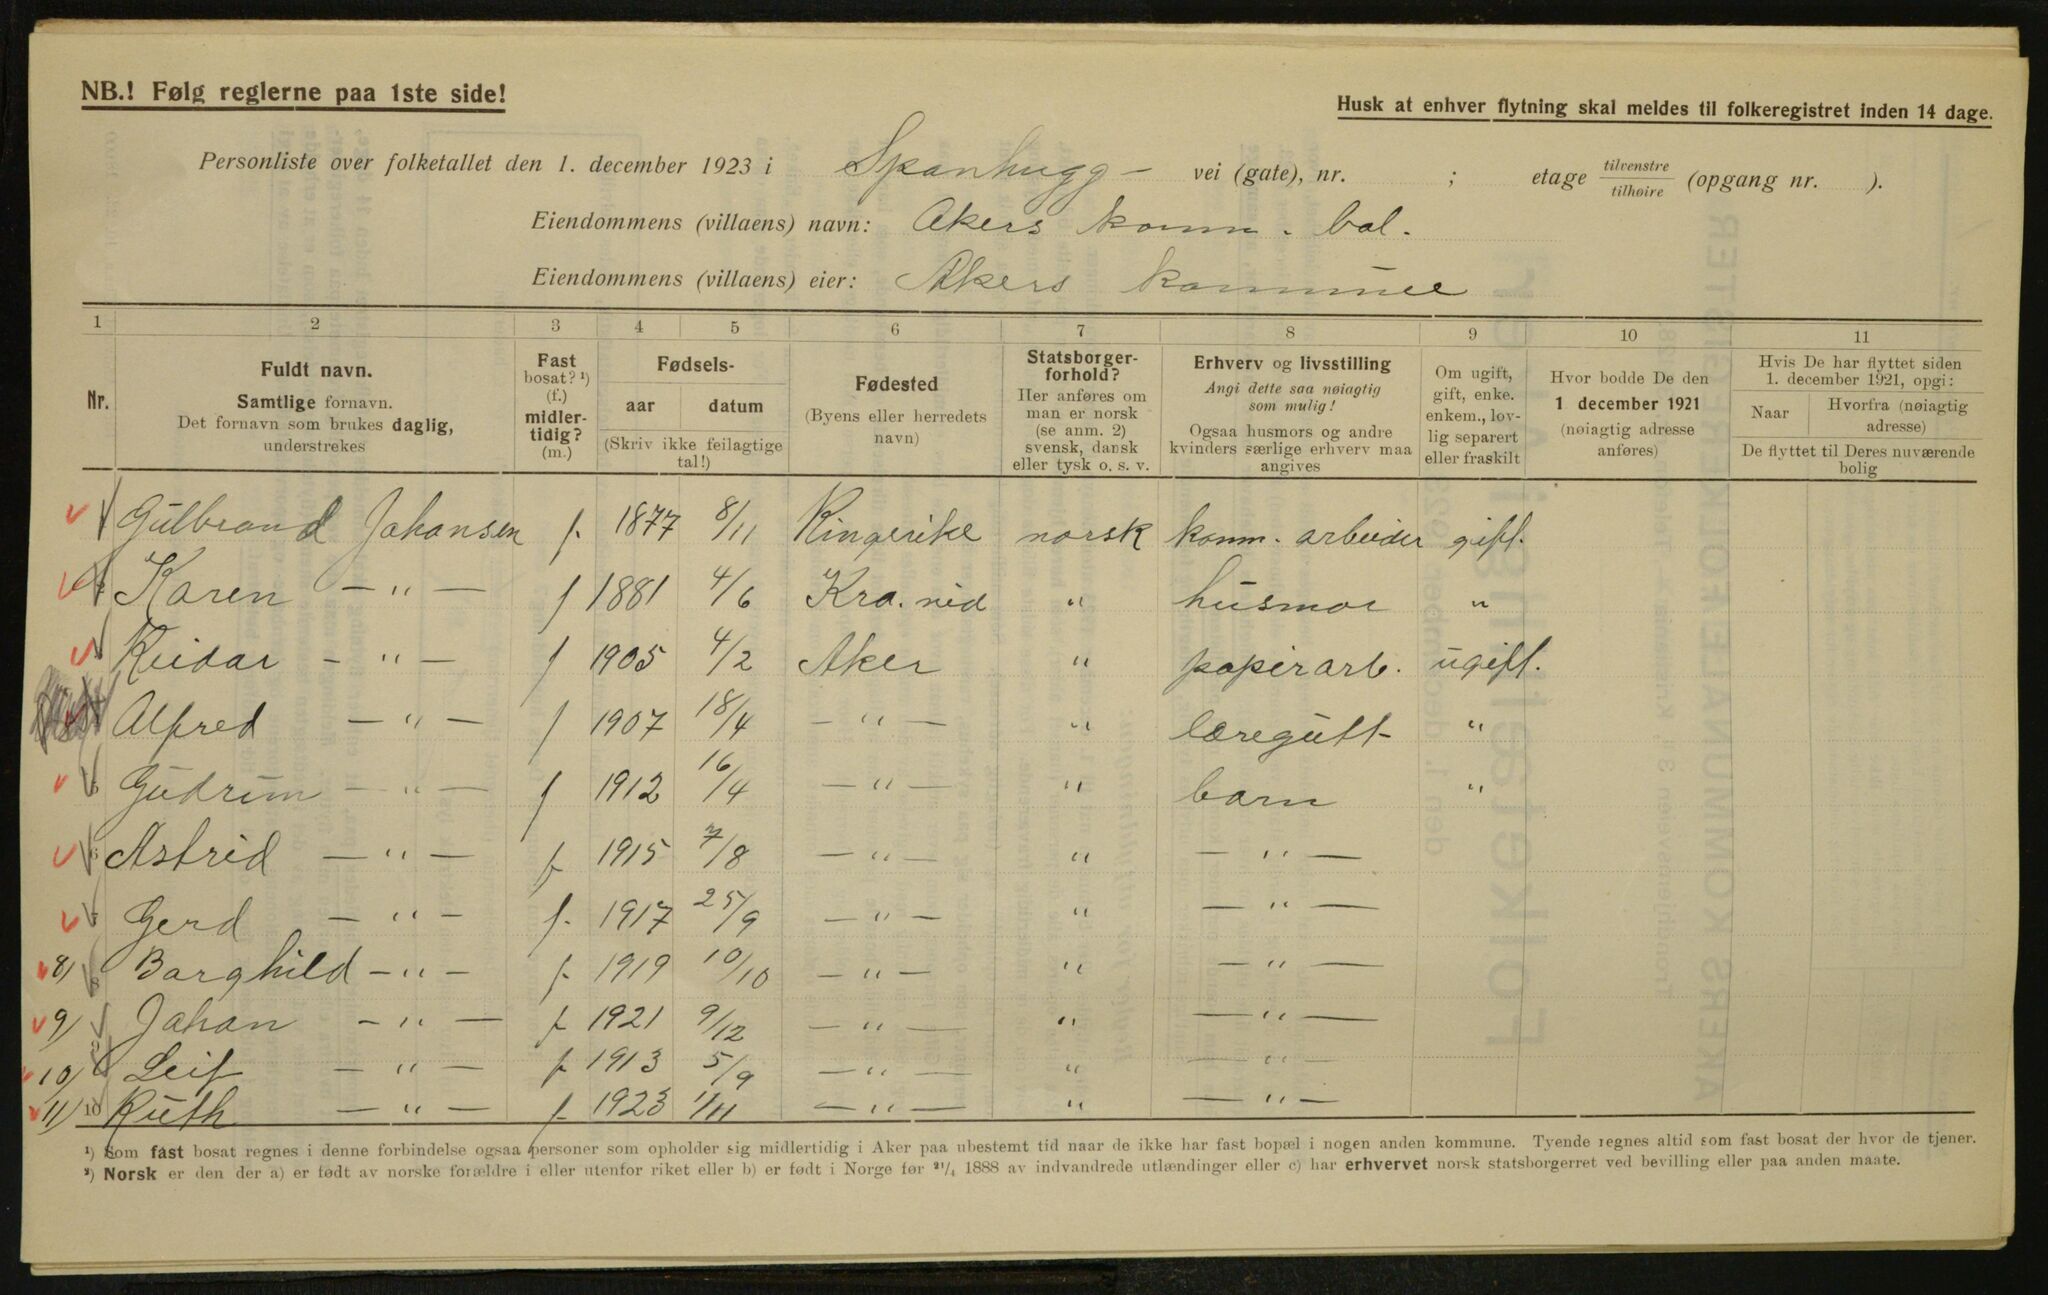 NB.! Følg reglerne paa 1ste side!
Husk at enhver flytning skal meldes til folkeregistret inden 14 dage.
Personliste over folketallet den 1. december 1923 i Spanhugg - vei (gate), nr. ; etage tilvenstre tilhøire (opgang nr. ).
Eiendommens (villaens) navn: Akers komm. bol.
Eiendommens (villaens) eier: Akers kommune
1 2 3 4 5 6 7 8 9 10 11
Nr.
Fuldt navn.
Samtlige fornavn.
Det fornavn som brukes daglig,
understrekes
Fast
bosat? ¹)
(f.)
midler-
tidig?
(m.)
Fødsels-
aar datum
(Skriv ikke feilagtige
tal!)
Fødested
(Byens eller herredets
navn)
Statsborger-
forhold?
Her anføres om
man er norsk
(se anm. 2)
svensk, dansk
eller tysk o. s. v.
Erhverv og livsstilling
Angi dette saa nøiagtig
som mulig!
Ogsaa husmors og andre
kvinders særlige erhverv maa
angives
Om ugift,
gift, enke.
enkem., lov-
lig separert
eller fraskilt
Hvor bodde De den
1 december 1921
(nøiagtig adresse
anføres)
Hvis De har flyttet siden
1. december 1921, opgi:
Naar Hvorfra (nøiagtig
adresse)
De flyttet til Deres nuværende
bolig
Gulbrand Johansen f. 1877 8/11 Ringerike norsk komm. arbeider gift.
Karen — " — f 1881 4/6 Kra. nid " husmor "
Reidar — " — f 1905 4/2 Aker " papirarb. ugift.
Alfred — " — f 1907 18/4 — " — " læregutt "
5 Gudrun — " — f 1912 16/4 — " — " barn "
6 Astrid — " — f 1915 7/8 — " — " — " —
7 Gerd — " — f. 1917 25/9 — " — " — " —
8) 8 Borghild — " — f. 1919 10/10 — " — " — " —
9) Johan — " — f 1921 9/12 — " — " — " —
10) Leif — " — f 1913 5/9 — " — " — " —
11) 10 Ruth — " — f 1923 1/11 — " — " — " —
¹) Som fast bosat regnes i denne forbindelse ogsaa personer som opholder sig midlertidig i Aker paa ubestemt tid naar de ikke har fast bopæl i nogen anden kommune. Tyende regnes altid som fast bosat der hvor de tjener.
²) Norsk er den der a) er født av norske forældre i eller utenfor riket eller b) er født i Norge før ²¹/₄ 1888 av indvandrede utlændinger eller c) har erhvervet norsk statsborgerret ved bevilling eller paa anden maate.